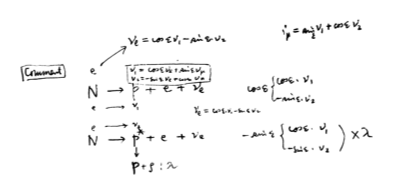 ν_e = cosε ν₁ − sinε ν₂
ν_p = sinε ν₁ + cosε ν₂
Comment
e
ν₁ = cosε ν_e + sinε ν_p
ν₂ = −sinε ν_e + cosε ν_p
N → p + e + ν_e
cosε { cosε · ν₁
−sinε · ν₂
e ν₁
ν_e = cosε ν₁ − sinε ν₂
e ν₂
N → p + e + ν_e
−sinε { cosε · ν₁
−sinε · ν₂ ) × λ
p + ρ : λ